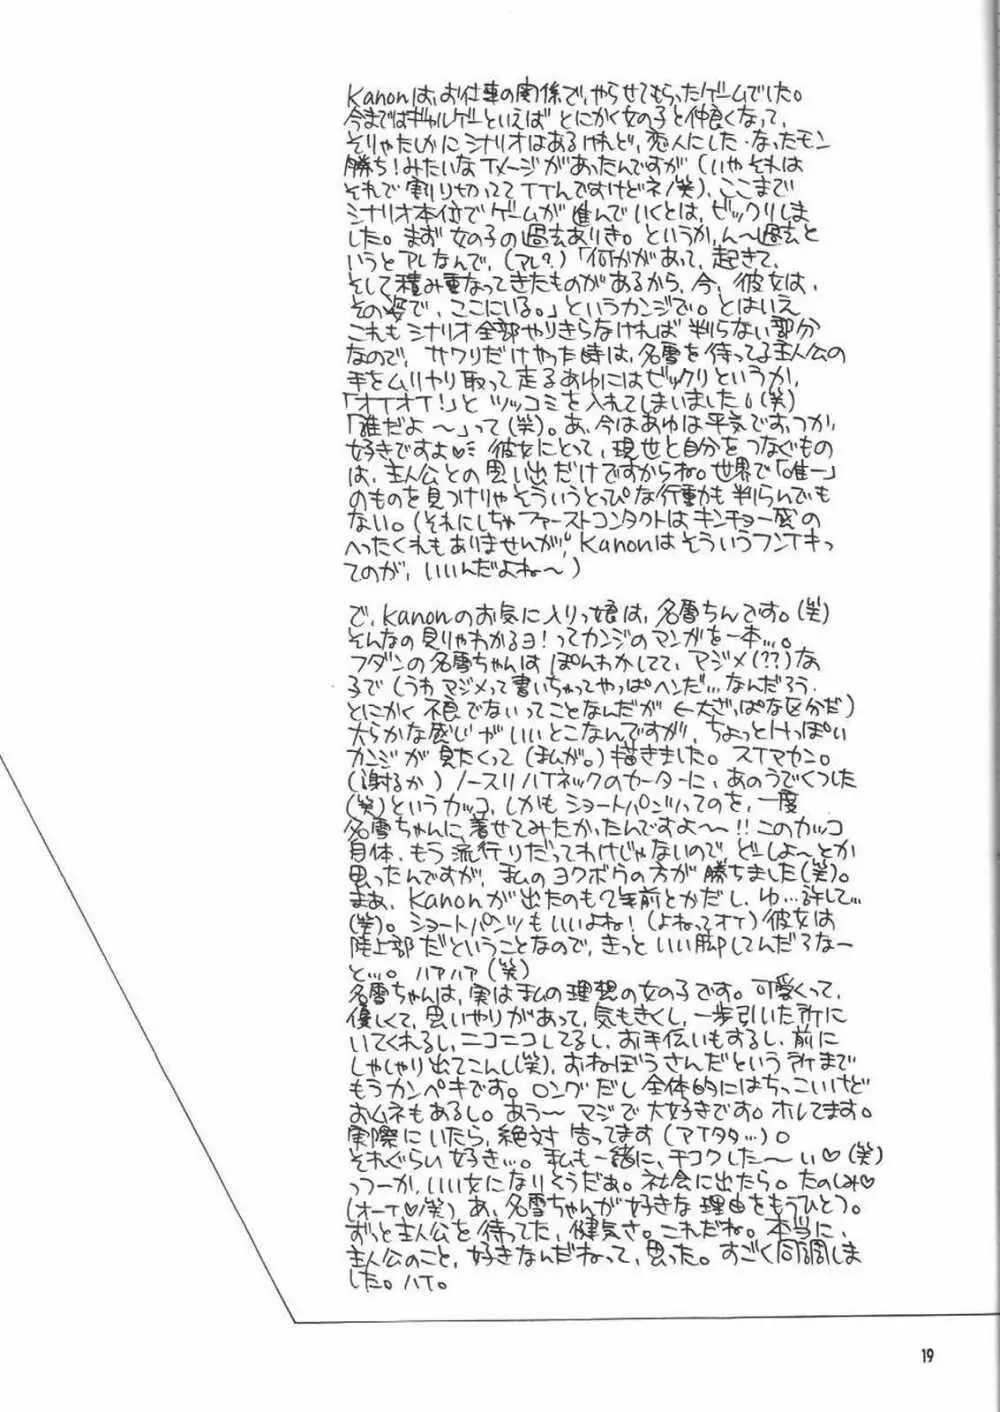 Kanonは、お仕事の関係で、やらせてもらったゲームでした。
今まではギャルゲーといえば とにかく女の子と仲良くなって、
そりゃたしかに シナリオはあるけれど、恋人にした・なったモン
勝ち!みたいな イメージがあったんですが(いや それは
それで 割り切ってて イイんですけどネ/笑)、ここまで
シナリオ本位で ゲームが 進んで いくとは、ビックリしま
した。まず 女の子の過去ありき。というか、ん〜過去と
いうと アレなんで、(アレ?)「何かがあって、起きて、
そして積み重なってきたものがあるから、今、彼女は、
その姿で、ここにいる。」というカンジで。とはいえ
これも シナリオ 全部やりきらなければ 判らない部分
なので、 サワリだけやった時は、名雪を待ってる主人公の
手をムリヤリ取って 走るあゆにはビックリというか、
「オイオイ!」と ツッコミを入れてしまいました。(笑)
「誰だよ 〜」って(笑)。あ、今はあゆは平気です、つか、
好きですよ♡ 彼女にとって、現世と自分をつなぐもの
は、主人公との思い出だけですからね。世界で「唯一」
のものを見つけりゃ そういうとっぴな行動も 判らんでも
ない。(それにしちゃ ファーストコンタクトは キンチョー感の
へったくれもありませんが、Kanonはそういうフンイキっ
てのが、いいんだよね〜)

で、Kanonのお気に入りっ娘は、名雪ちんです。(笑)
そんなの見りゃわかるヨ!ってカンジのマンガを一本…。
フダンの名雪ちゃんは ぽんわかしてて、マジメ(??)な
子で(うわ マジメって書いちゃってやっぱヘンだ…なんだろう、
とにかく 不良でないってことなんだが ←大ざっぱな区分だ)
大らかな感じがいいとこなんですが、ちょっとHっぽい
カンジが 見たくって(私が。)描きました。スイマセン。
(謝るか)ノースリハイネックのセーターに、あのうでくつした
(笑)というカッコ、しかも ショートパンツってのを、一度
名雪ちゃんに、着せてみたかったんですよ〜!!このカッコ
自体、もう 流行りだってわけじゃないので どーしよ〜とか
思ったんですが、私のヨクボウの方が 勝ちました(笑)。
まあ、Kanonが出たのも2年前とかだし、ゆ…許して…
(笑)。ショートパンツもいいよね!(よねってオイ)彼女は
陸上部だということなので、きっと いい脚してんだろなー
と…。ハァハァ(笑)
名雪ちゃんは、実は私の理想の女の子です。可愛くって、
優しくて、思いやりがあって、気もきくし、一歩引いた所に
いてくれるし、ニコニコしてるし、お手伝いもするし、前に
しゃしゃり出てこんし(笑)、おねぼうさんだという所まで
もうカンペキです。ロングだし 全体的にはちっこいけど
おムネもあるし。あう〜 マジで 大好きです。ホレてます。
実際に いたら、絶対 告ってます(アイタタ…)。
それぐらい 好き…。私も一緒に、チコクした〜い♡(笑)
っつーか、いい女になりそうだあ。社会に出たら。たのしみ♡
(オーイ♡/笑) あ、名雪ちゃんが好きな理由をもうひとつ。
ずっと主人公を待ってた、健気さ。これだね。本当に、
主人公のこと、好きなんだねって、思った。すごく同調しま
した。ハイ。
19